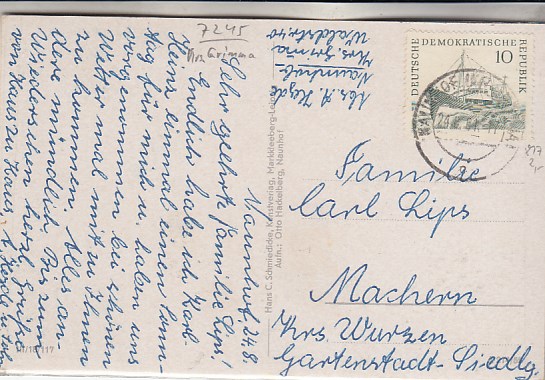 7245
Krs Grimma
Naunhof, 24.8.
Sehr geehrte Familie Lips!
Endlich habe ich Karl-
Heinz einmal einen Sonn-
tag für mich u. haben uns
vorgenommen bei schönem
Wetter mal mit zu Ihnen
zu kommen. Alles an-
dere mündlich. Bis zum
Wiedersehn herzl. Grüße
von Haus zu Haus
Abs. A. Heyde
Naunhof
Krs. Grimma
Waldstr. 40
Hans C. Schmiedicke, Kunstverlag, Markkleeberg-Leipzig
Aufn.: Otto Heckelberg, Naunhof
DEUTSCHE DEMOKRATISCHE REPUBLIK
10
Familie
Carl Lips
Machern
Krs. Wurzen
Gartenstadt-Siedlg.